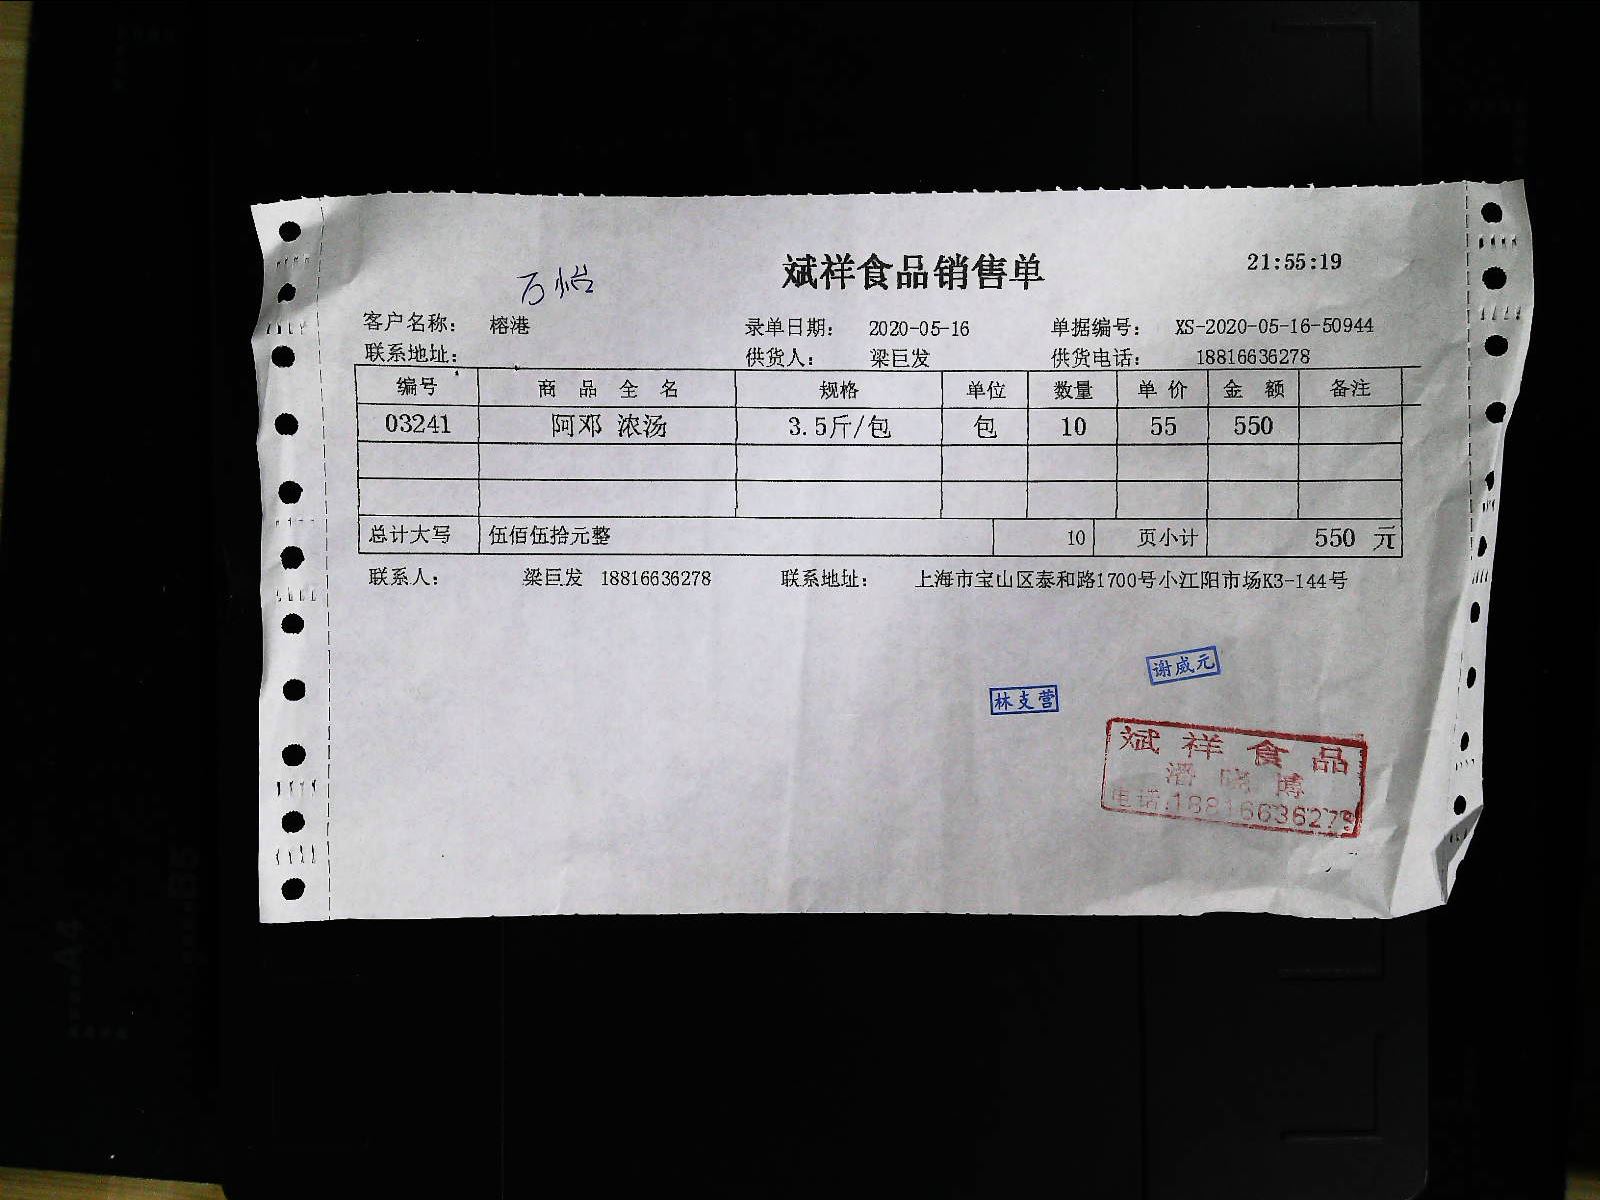 斌祥食品销售单 21:55:19
万怡
客户名称: 榕港 录单日期: 2020-05-16 单据编号: XS-2020-05-16-50944
联系地址: 供货人: 梁巨发 供货电话: 18816636278
编号 商品全名 规格 单位 数量 单价 金额 备注
03241 阿邓 浓汤 3.5斤/包 包 10 55 550
总计大写 伍佰伍拾元整 10 页小计 550 元
联系人: 梁巨发 18816636278 联系地址: 上海市宝山区泰和路1700号小江阳市场K3-144号
谢威元
林支营
斌祥食品
潘晓博
电话:18816636278
A4
B5